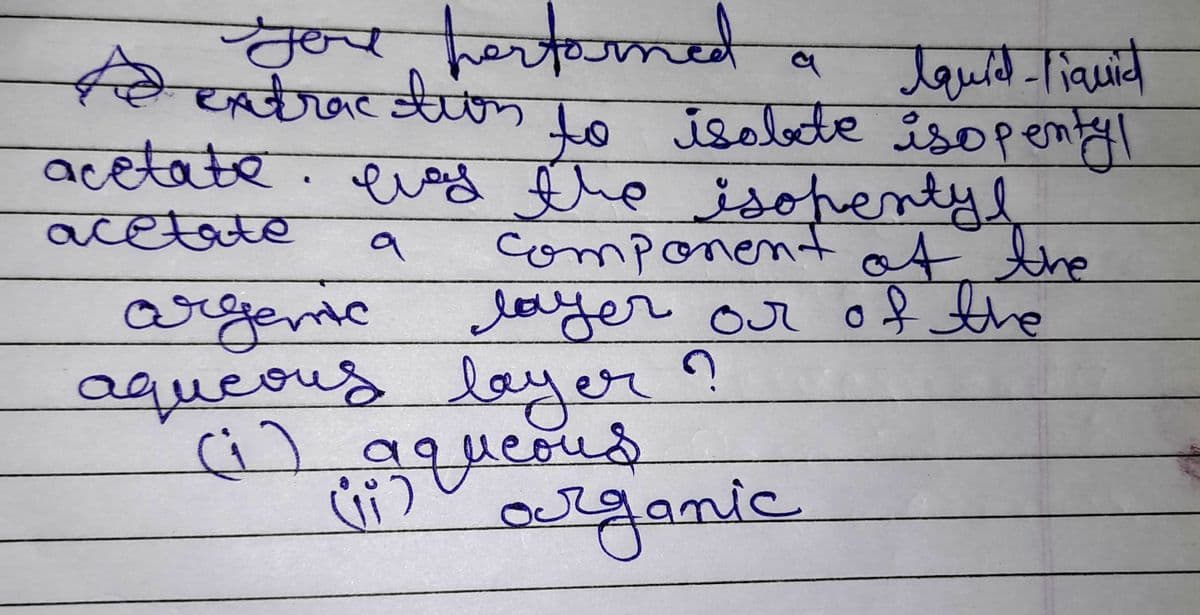 You performed a lquid-liquid
extraction to isolate isopentyl
acetate. was the isopentyl
acetate a component of the
orgenic layer or of the
aqueous layer?
(i) aqueous
(ii) organic